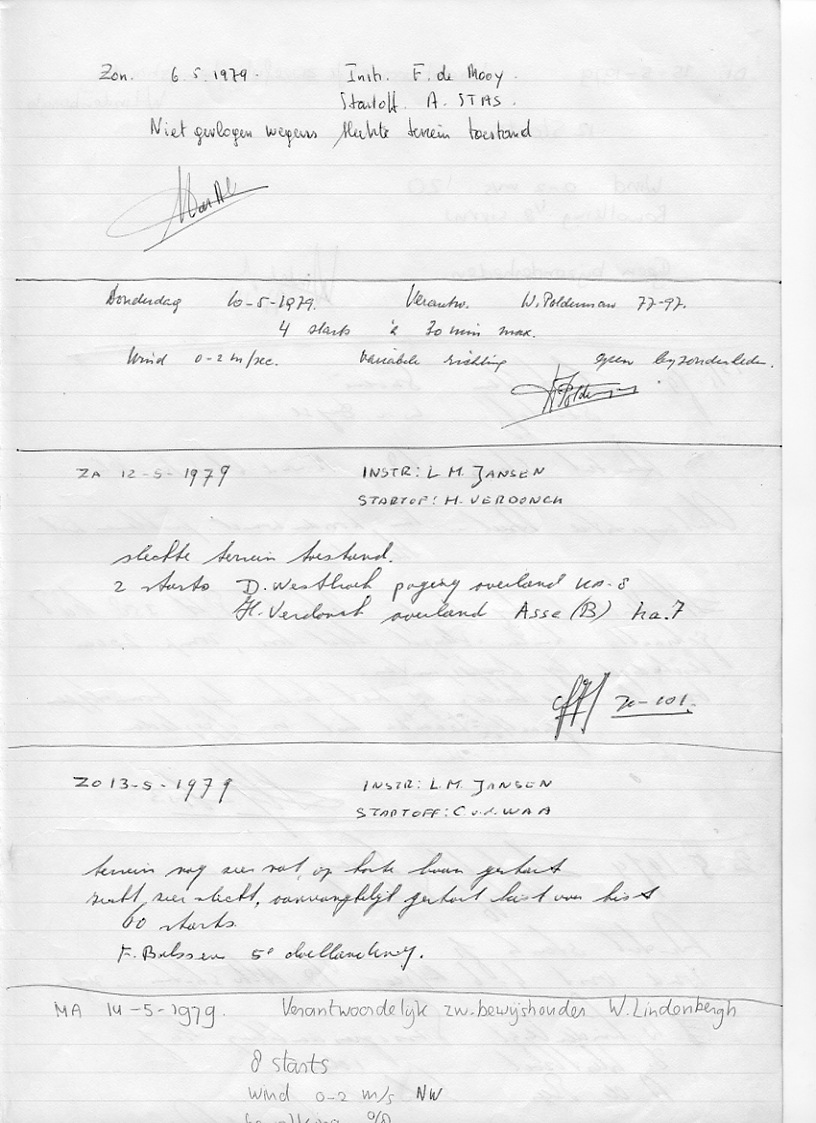 Zon. 6.5.1979. Instr. F. de Mooy.
Startoff. A. STAS.
Niet gevlogen wegens slechte terrein toestand
Donderdag 10-5-1979. Verantw. W. Polderman 77-97.
4 starts à 30 min max.
Wind 0-2 m/sec. variabele richting geen byzonderheden.
ZA 12-5-1979 INSTR: L.M. JANSEN
STARTOF: H. VERDONCK
slechte terrein toestand.
2 starts D. Westhoek poging overland ka-8
H. Verdonck overland Asse (B) ka.7
ZO 13-5-1979 INSTR: L.M. JANSEN
STARTOFF: C.v.d. WAA
terrein nog zeer nat, op korte baan gestart
zicht zeer slecht, aanvankelijk gestart
60 starts.
F. 5e doellanding.
MA 14-5-1979. Verantwoordelijk zw.bewijshouder W. Lindenbergh
8 starts
Wind 0-2 m/s NW